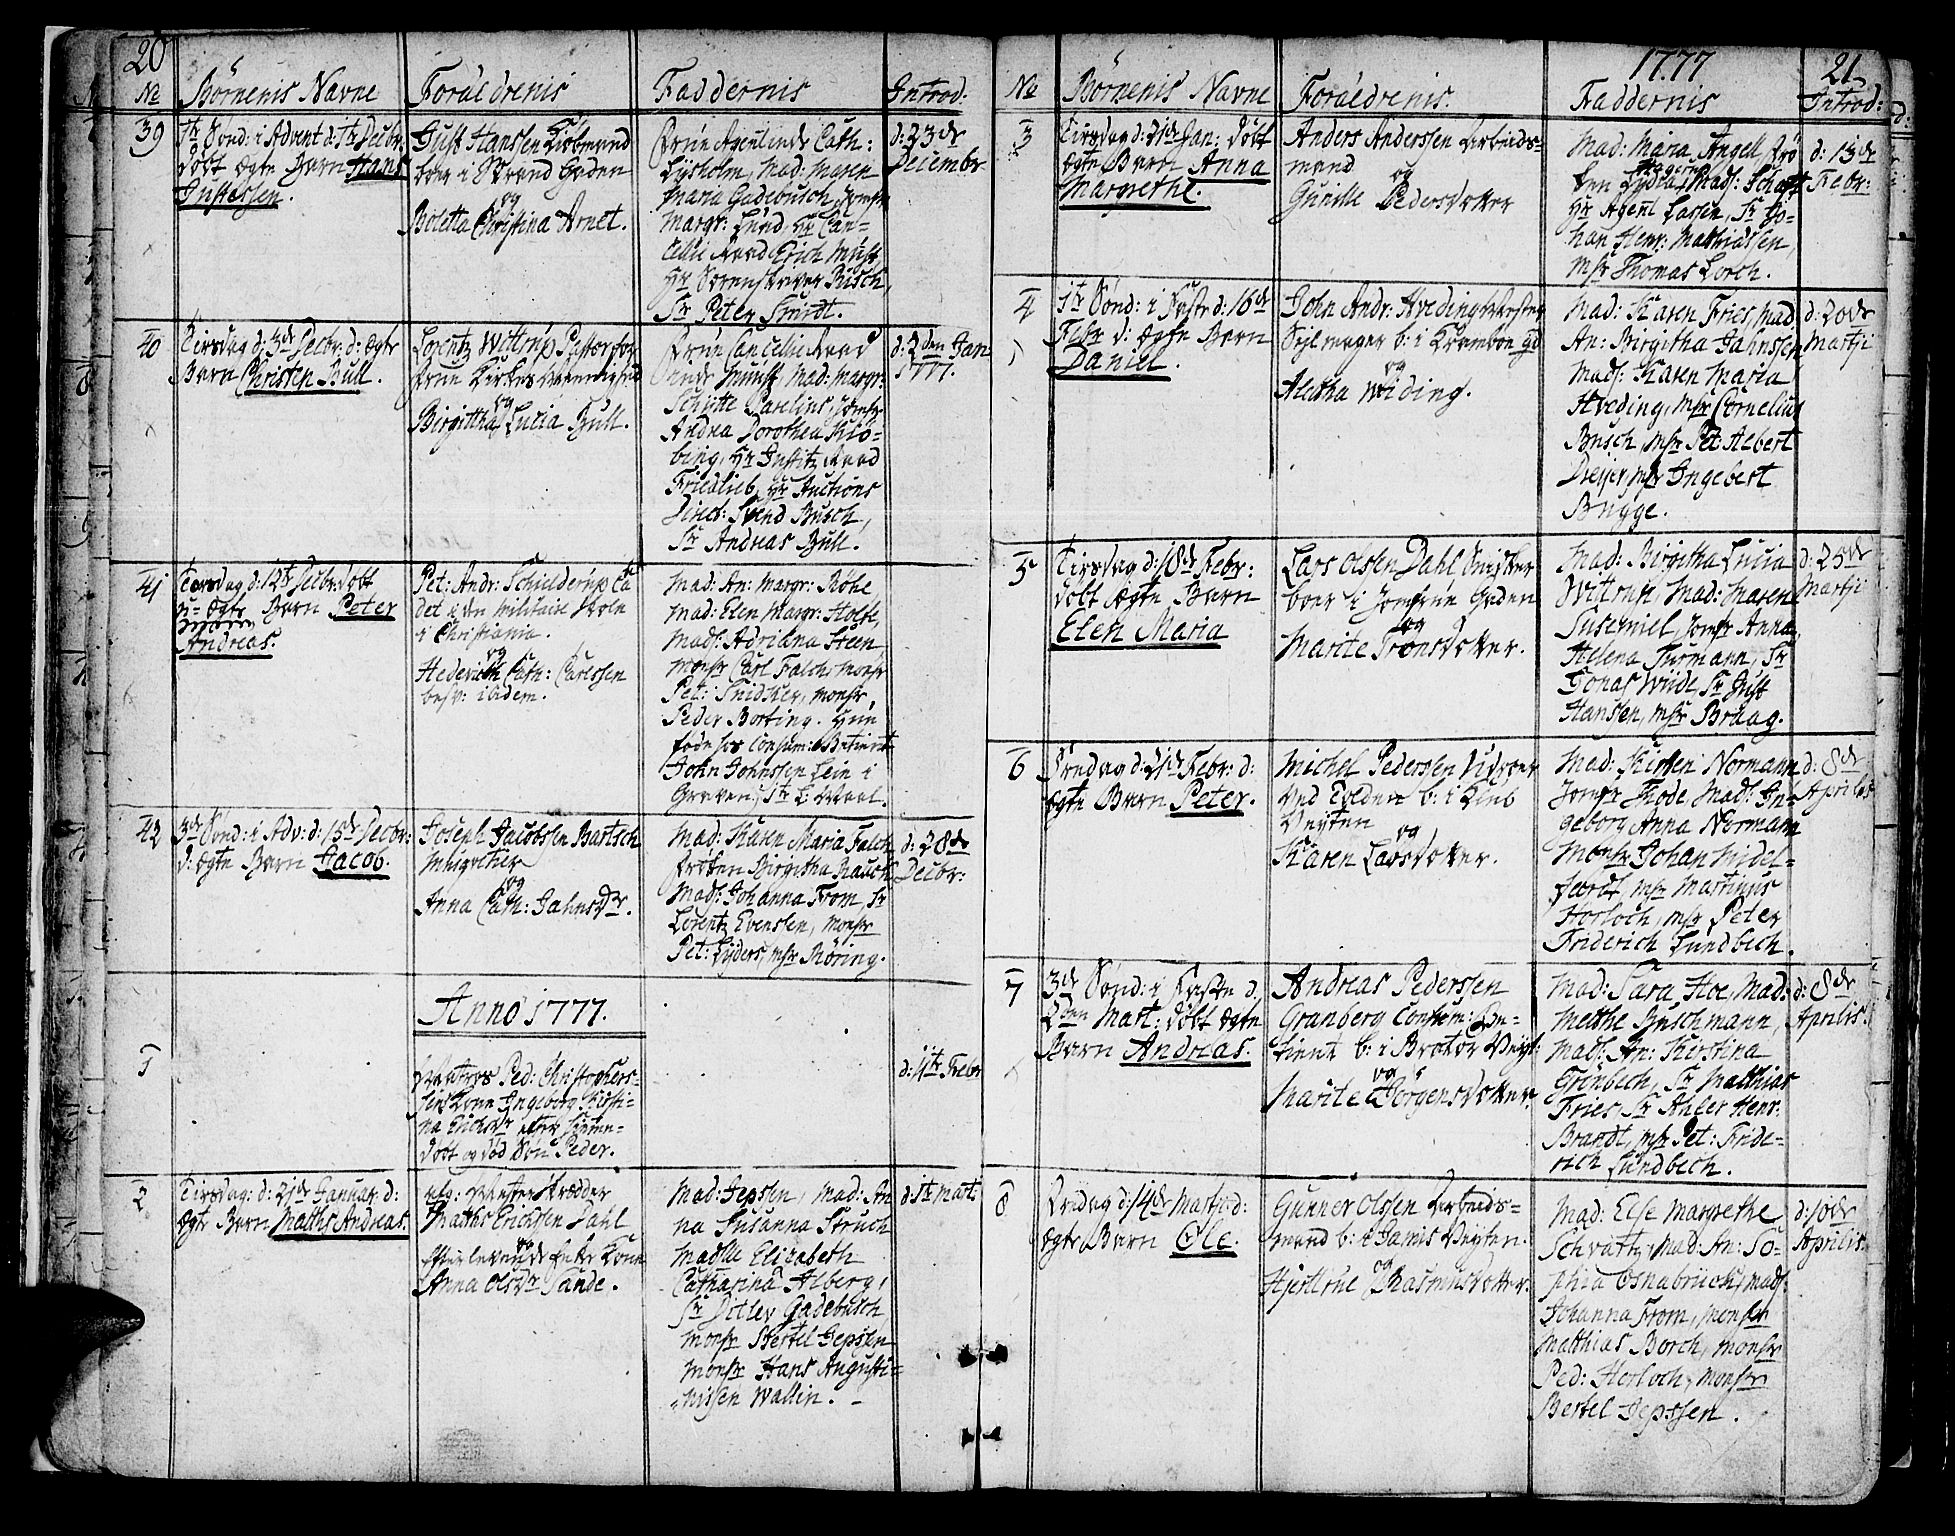 20
No Börnenis Navne Forældrenis Faddernis Introd:
39
1te Sønd: i Advent d: 1te Decbr
døbt ægte Barn Hans
Justessen.
Just Hanssen Kiöbmand
boer i Strand Gaden
og
Boletta Christina Arnet.
Cath:
Lysholm, Mad: Maren
Maria Gadebusch, Jomfr
Margr: Lund, Hr Can-
cellie Raad Erich Must,
Hr Sorenskriver Busch,
Sr Peter Smidt.
d: 23de
Decembr
40
Tirsdag d: 3de Decbr: d: ægte
Barn Christen Bull.
Lorentz Wittrup Pastor
Birgitha Lucia Bull.
og
Frue Cancellie Raad
Must, Mad: Margr:
Schjøtte Jomfr
Andrea Dorothea Klö-
bing, Hr Justitz Raad
Friedlieb, Hr Auctions
Direct: Svend Busch,
Sr Andreas Bull.
d: 2den Jan
1777.
41
Torsdag d: 12te Decbr: døbt
u-ægte Barn Peter
Andreas.
Pet: Andr: Schielderup Ca
det i den militaire Skole
i Christiania.
og
Hedevich Cath: Carlssen
besv: ibidem.
Mad: An: Margr: Röhe
Mad: Elen Margr: Holte,
Mads: Adriana Steen
Monsr Carl Falch, Monsr
Pet: Snidker, Monsr,
Peder Borting. Hun
føde hos Consum: Betient
John Johnssen Lein i
Graven,
42
3de Sønd: i Adv: d: 15de Decbr:
d: ægte Barn Jacob.
Joseph Jacobssen Bartsch
og
Anna Cath: Jahnsdr.
Mad: Karen Maria Falch
Frøken Birgitha Rauch
Mads: Johanna From, Sr
Lorentz Evenssen, Monsr
Pet: Lyders, Msr Möring.
d: 28de
Decbr:
Anno 1777.
1
Ped: Christophers-
sens Kone Ingeborg Kisti-
na Erichsdr efter hieme-
døbt og død Søn Peder.
d: 11te Febr
2
Tirsdag: d: 21de Januar d:
ægte Barn Matths Andreas.
Mester Skrædder
Matths Erichsen Dahl
og
Efterlevende Enke Kone
Anna Olsdr Sande.
Mad: Jepssen, Mad: An
na Susanna Struch
Madlle Elizabeth
Catharina Alberg,
Sr Ditlev Gadebusch
Monsr Bertel Jepssen
Monsr Hans Augusti-
nissen Wallin.
d: 1te Mart:
1777 21
No Börnenis Navne Forældrenis. Faddernis Introd:
3
Tirsdag d: 21de Jan: døbt
ægte Barn Anna
Margrethe.
Anders Anderssen Arbeids-
mand
og
Gunille Pedersdotter
Mad: Maria Angell, Frö
ken Lydia Mads:
Hr Agent Lassen, Sr Jo-
han Henr: Matthiassen,
Msr Thomas Lorch.
d: 13de
Febr:
4
1te Sønd: i Faste d: 16de
Febr d: ægte Barn
Daniel.
John Andr: Hveding Mester
Sejlmager b: i Kramboe Gd
og
Aletha Widing.
Mad: Karen Fries, Mad
An: Birgitha Jahnssen
Mads: Karen Maria
Hveding, Msr Cornelius
Busch, Msr Pet: Albert
Dreyer, Msr Ingebert
Brygge.
d: 20de
Martji
5
Tirsdag d: 18de Febr:
døbt ægte Barn
Elen Maria
Lars Olsen Dahl Snidker
boer i Jomfrue Gaden
og
Marite Tronsdotter.
Mad: Birgitha Lucia
Wittrup, Mad: Maren
Susemiel, Jomfr Anna
Helena Furmann, Sr
Jonas Wiide, Sr Just
Hanssen, Msr Bruag.
d: 25de
Martji
6
d: 21de Febr: d:
ægte Barn Peter.
Michel Pederssen
b: i Kiøb
Veyten
og
Karen Larsdotter.
Mad: Kirsten Normann
Jomfr Thode Mads: In-
geborg Anna Normann
Monsr Johan Midel-
fardt, Msr Martinus
Horloch, Msr Peter
Friderich Lundbech.
d: 8de
Aprilis
7
3de Sønd: i Faste d.
2den Mart: døbt ægte
Barn Andreas.
Andreas Pederssen
Granberg Consum: Be-
tient b: i Brator Veyt:
og
Marite Jörgensdotter.
Mad: Sara Hoe, Mad:
Mette Buschmann,
Mads: An: Kirstina
Grönbech, Sr Matthias
Fries, Sr Henr:
Brandt, Msr Pet: Fride-
rich Lundbech.
d: 8de
Aprilis.
8
Fredag d: 14de Martji d:
ægte Barn Ole.
Gunner Olssen Arbeids-
mand b: i Jamis Veyten.
og
Rasmusdotter.
Mad: Else Margrethe
Schvatz, Mad: An: So-
phia Osnabruch, Mads:
Johanna From, Monsr
Matthias Borch, Monsr
Ped: Horloch, Monsr
Bertel Jepssen.
d: 10de
Aprilis.